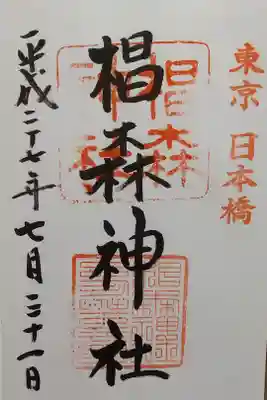 東京 日本橋
椙森神社
平成二十七年七月二十一日
椙森
神社